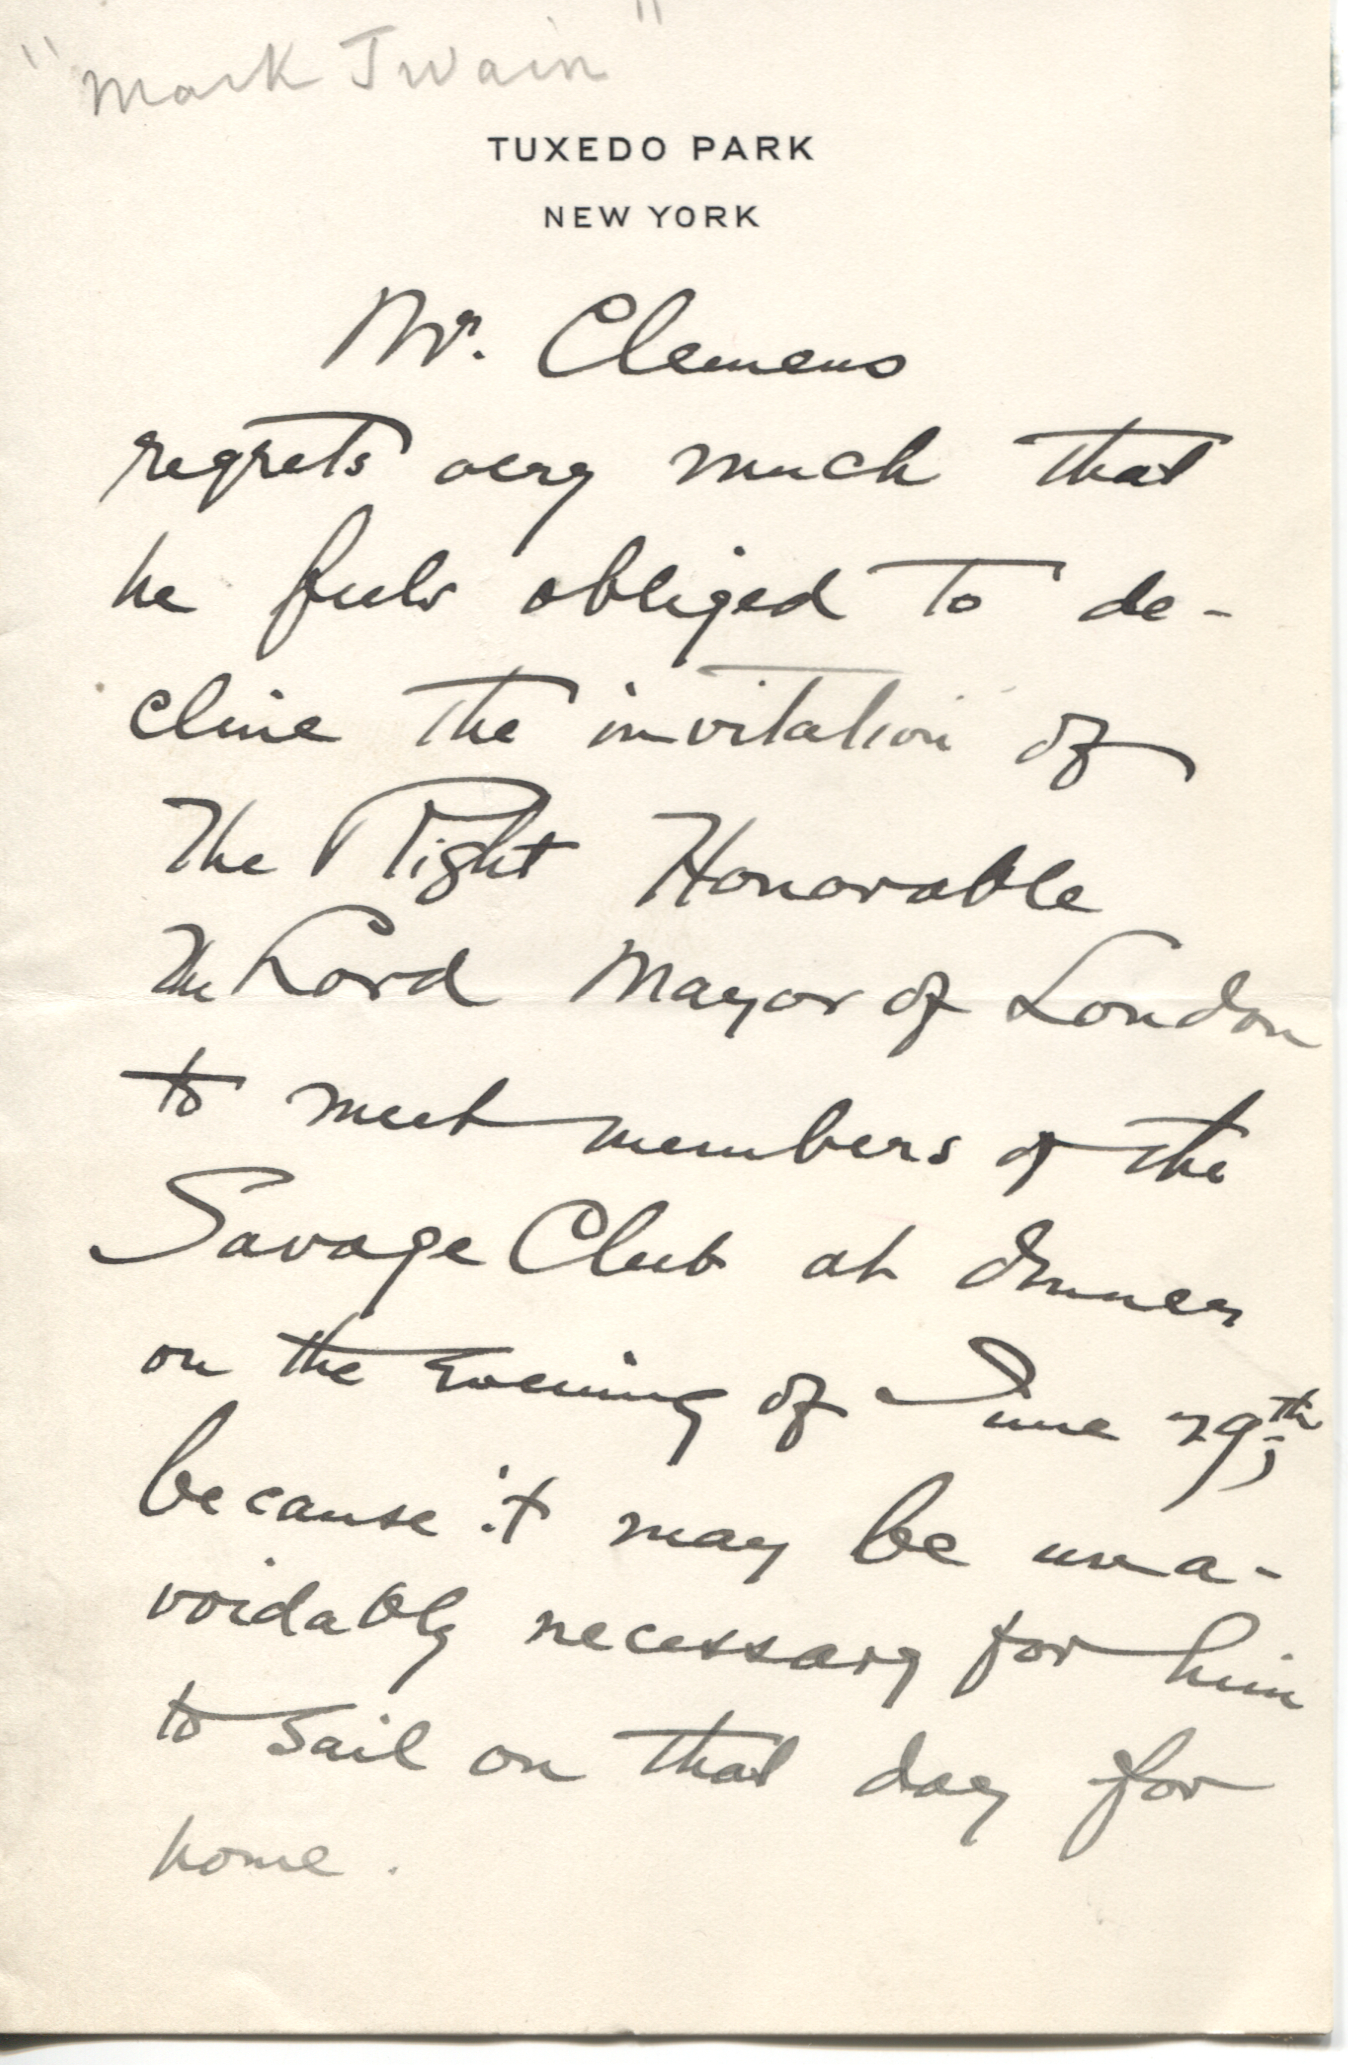 "Mark Twain"
TUXEDO PARK
NEW YORK
Mr. Clemens
regrets very much that
he feels obliged to de-
cline the invitation of
The Right Honorable
the Lord Mayor of London
to meet members of the
Savage Club at dinner
on the evening of June 29th;
because it may be una-
voidably necessary for him
to sail on that day for
home.